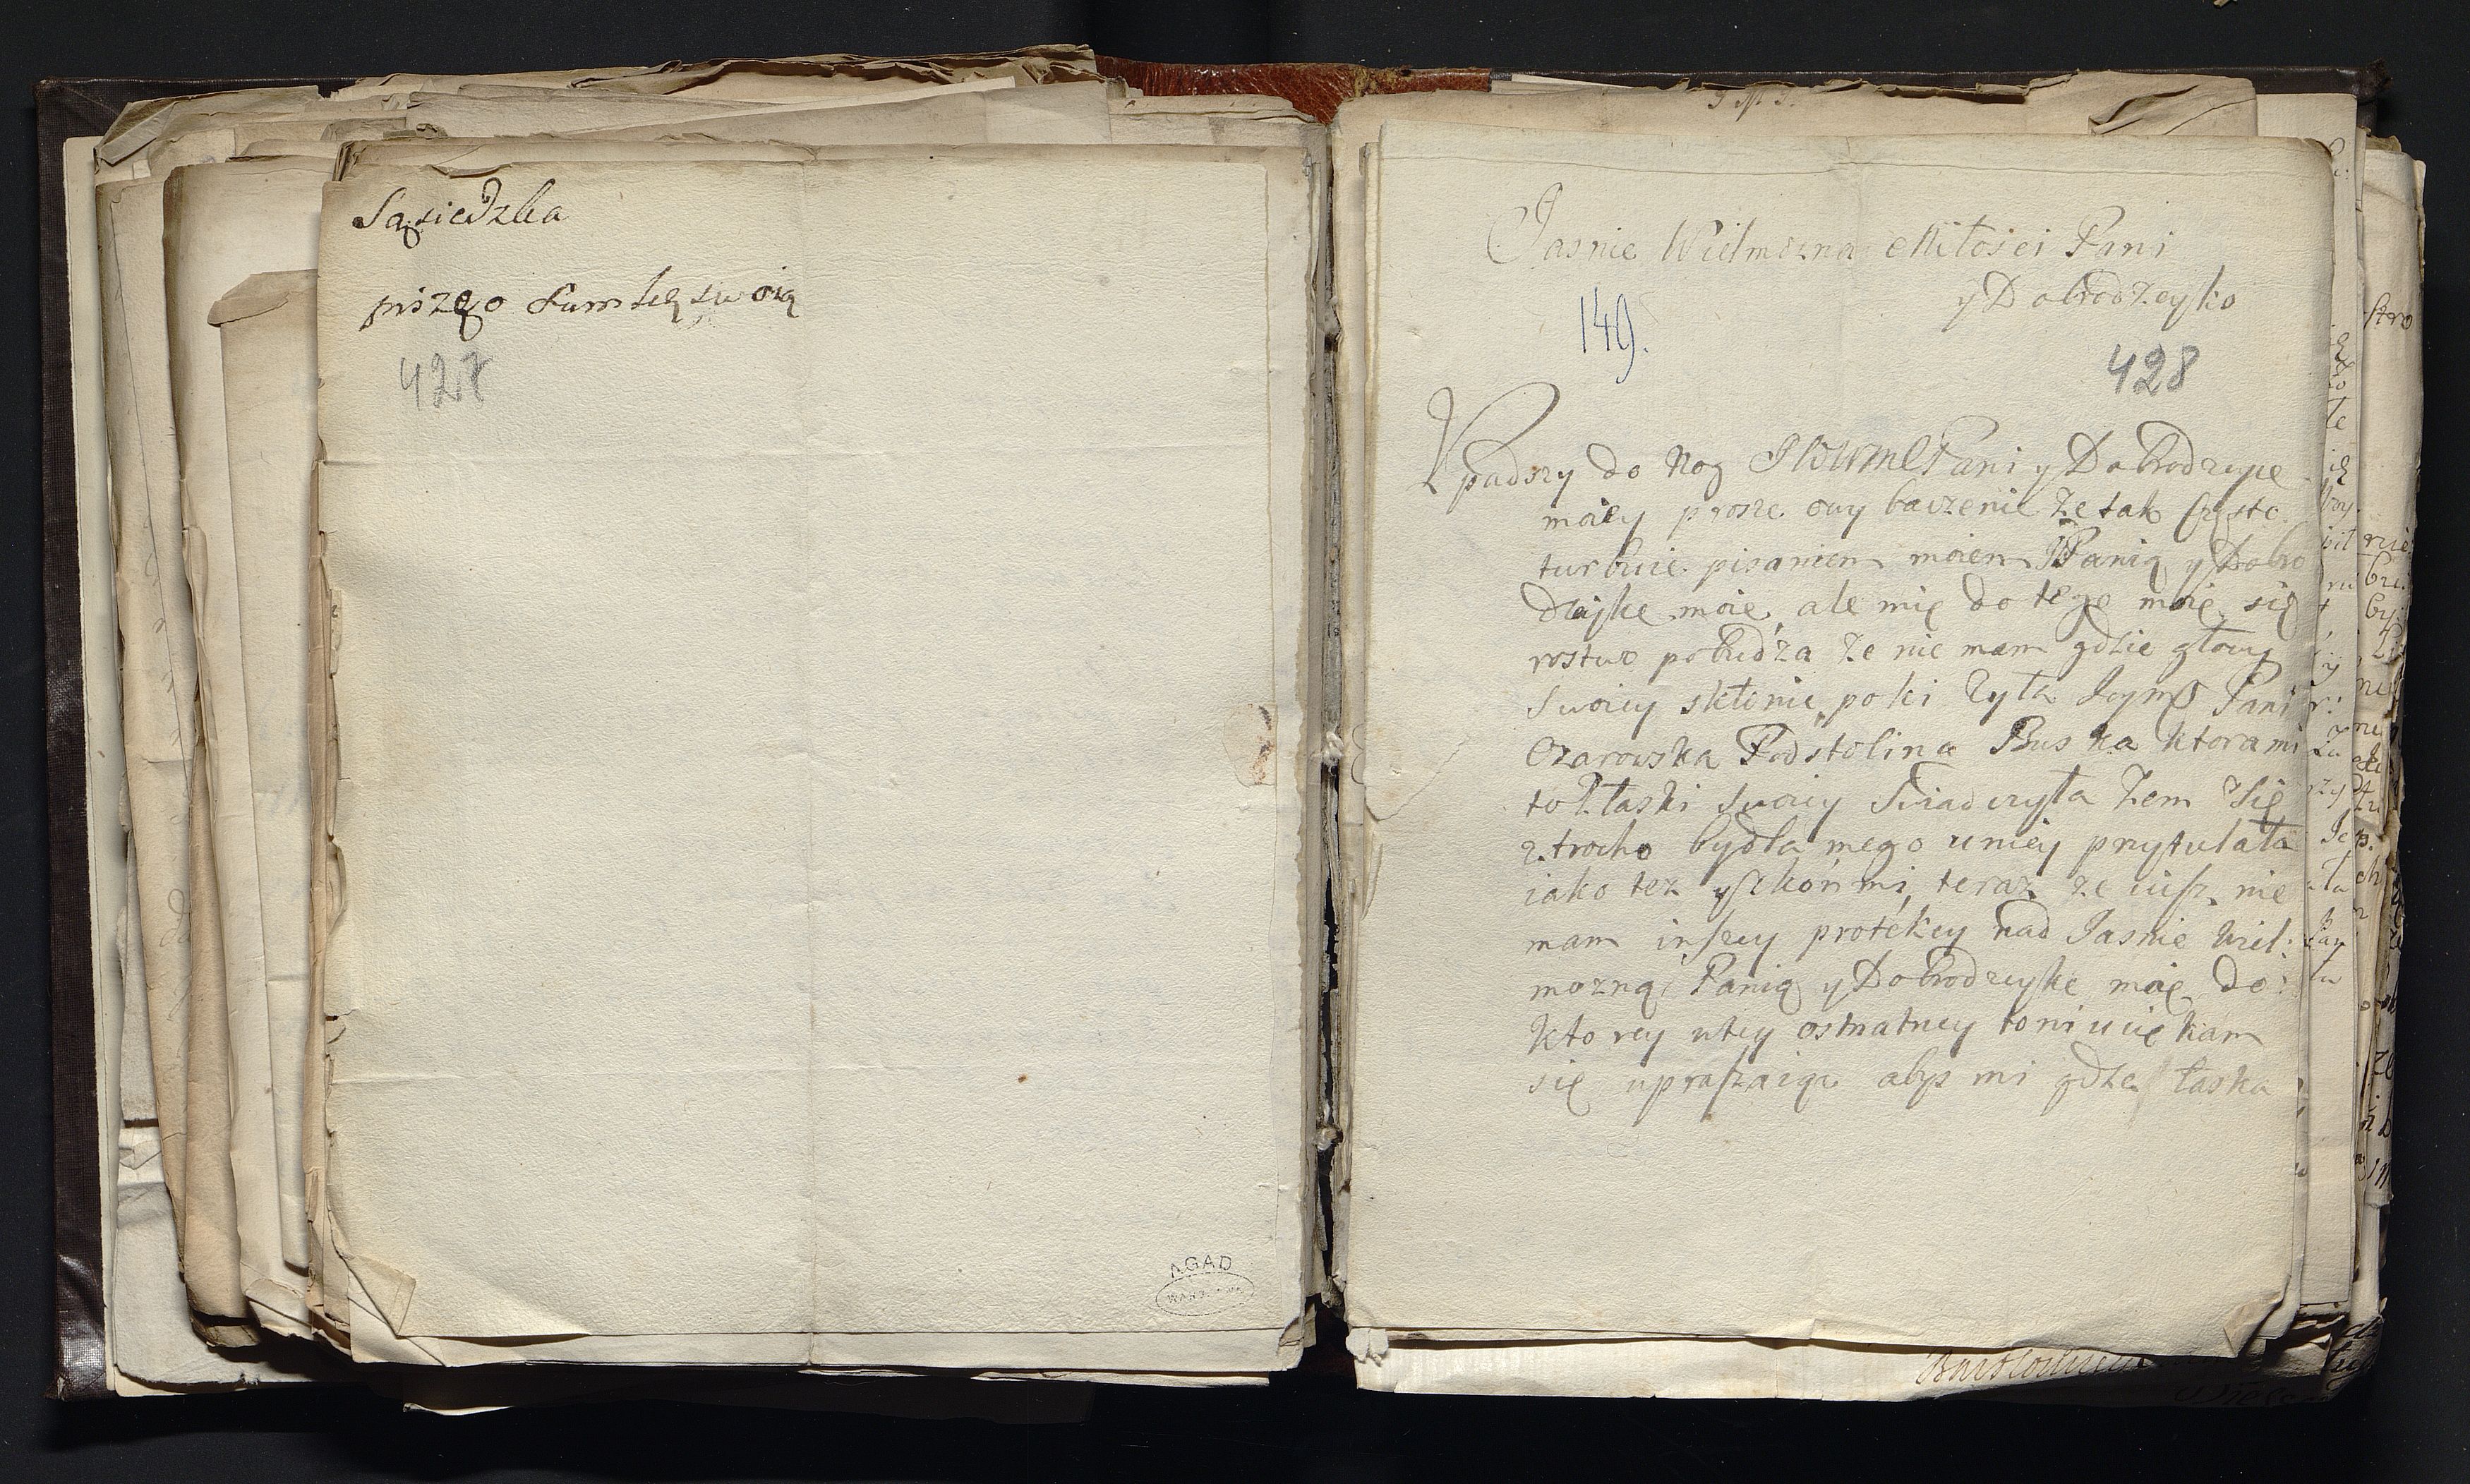 Sąsiedzka
piszę o
427
AGAD
Jasnie Wielmozna Miłosci Pani
y Dobrodzeyko
149.
428
Vpadszy do nog Pani y Dobrodzyie
moiey prosze owybaczenie ze tak często
turbuie pisaniem moiem JPanią y Dobro
dziejke moię, ale mię do tego moie się
rostwo pobudza ze nie mam gdzie głowy
swoiey skłonic, poki zyła Jeymo Pani
Ozarowska Podstolina Buska ktora mi
to z łaski swoiey swiadczyła zem się
z trocho bydła mego u niey przytulała
iako tez y z konmi, teraz ze iusz nie
mam inszey protekcy nad Jasnie Wiel:
mozną Panią y Dobrodzeyke moię do:
ktorey w tey ostnatney toni uciekam
się upraszaiąc abys mi gdze łaska